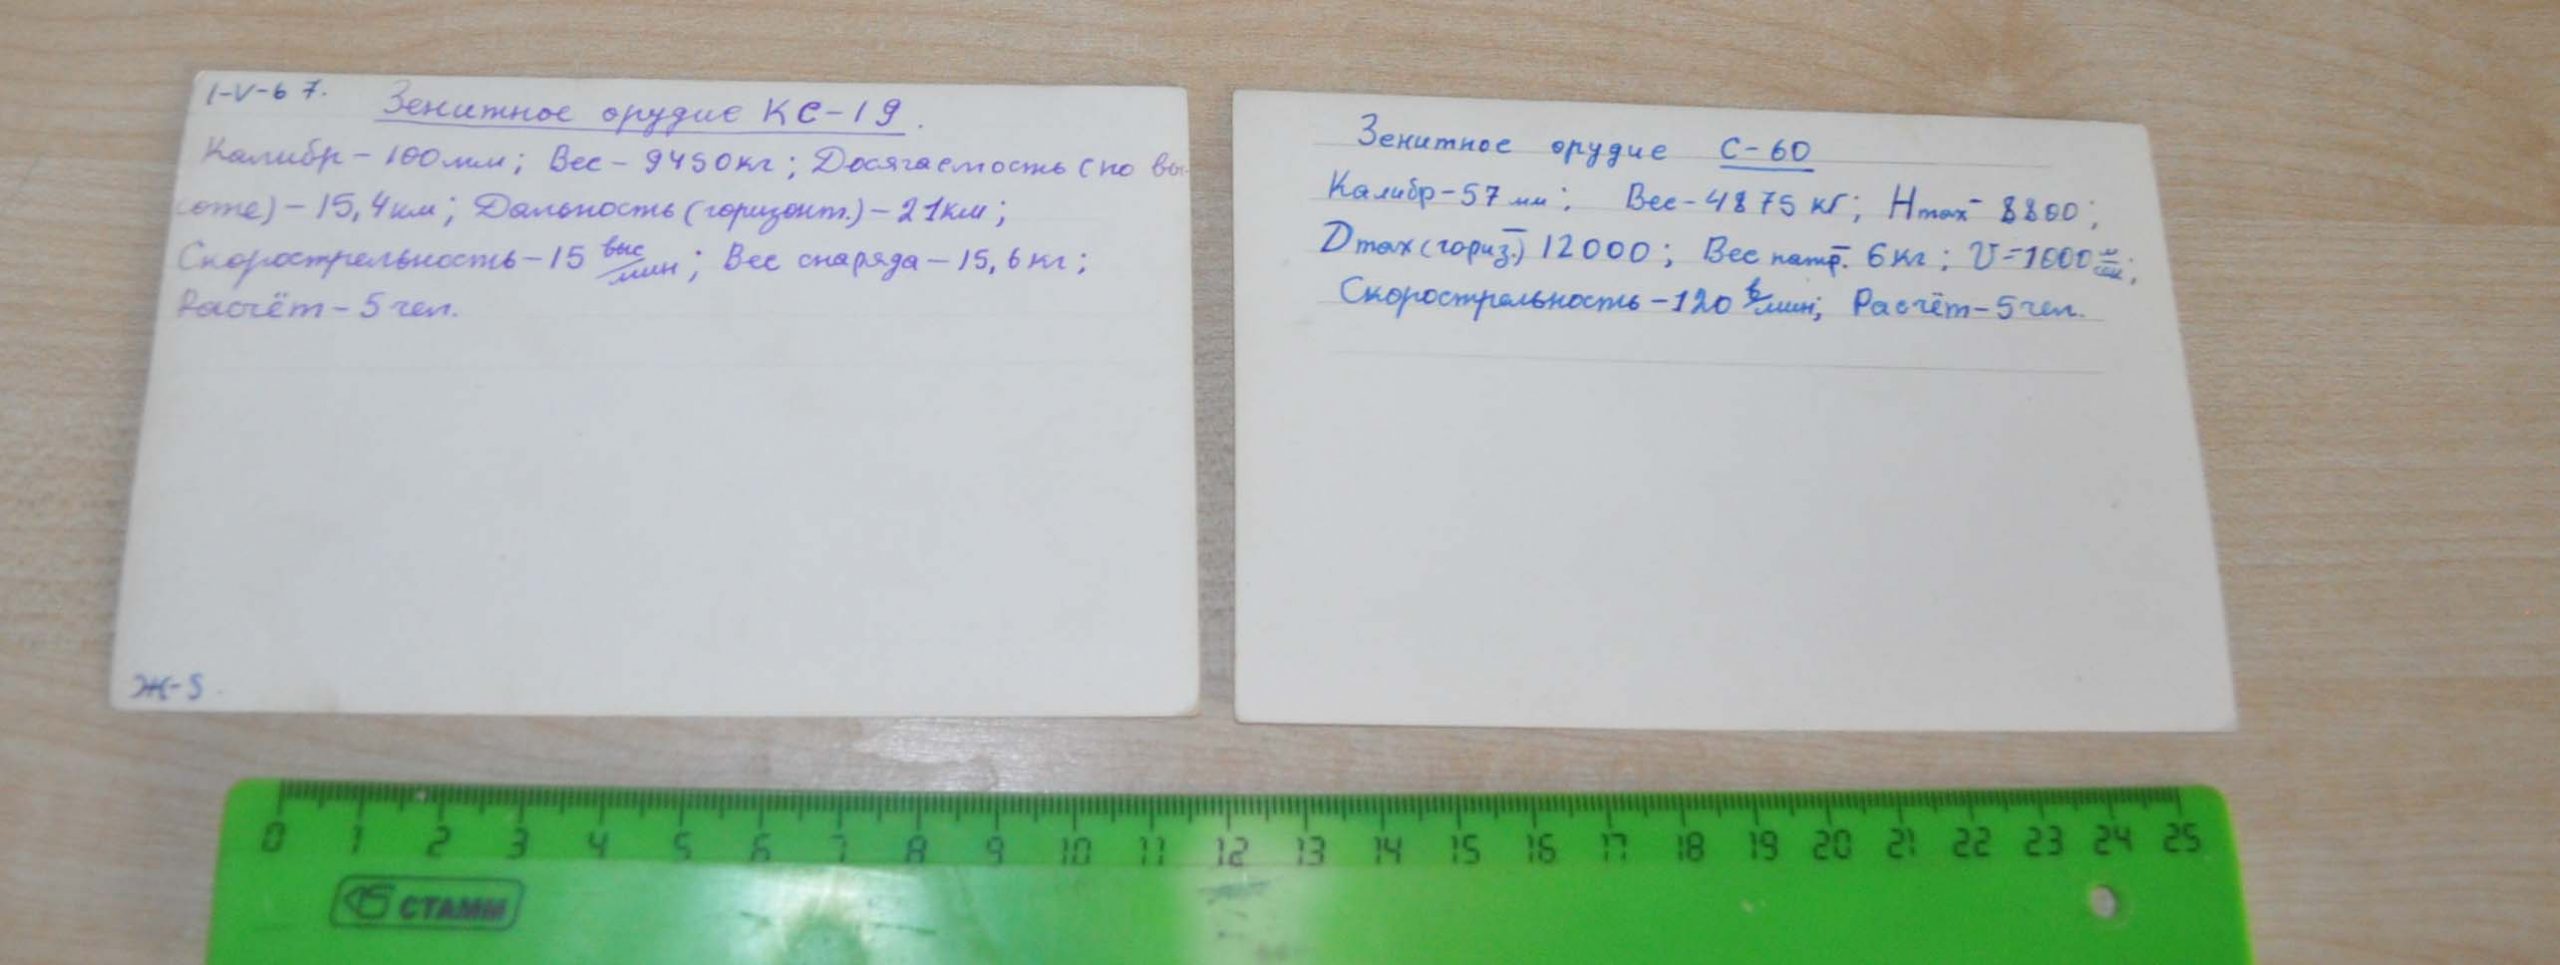 1-V-67.
Зенитное орудие КС-19.
Калибр - 100мм; Вес - 9450кг; Досягаемость (по вы-
соте) - 15,4км; Дальность (горизонт.) - 21км;
Скорострельность - 15 выс/мин; Вес снаряда - 15,6кг;
Расчёт - 5 чел.
Ж-5
Зенитное орудие С-60
Калибр - 57 мм; Вес - 4875 кг; Hmax - 8800;
Dmax (гориз.) - 12000; Вес патр. - 6кг; V=1000 м/сек;
Скорострельность - 120 в/мин; Расчёт - 5 чел.
0 1 2 3 4 5 6 7 8 9 10 11 12 13 14 15 16 17 18 19 20 21 22 23 24 25
СТАММ